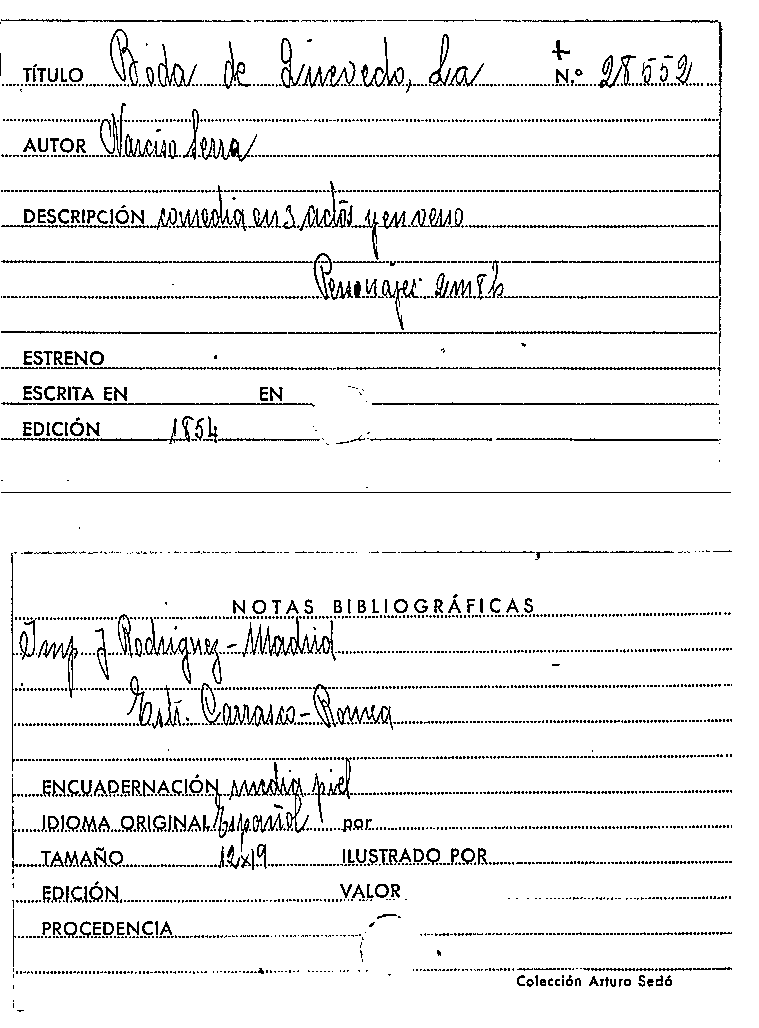 TÍTULO Boda de Quevedo, La + N.º 28552
AUTOR Narciso Serra
DESCRIPCIÓN comedia en 3 actos y en verso
Personajes 2m 8h
ESTRENO
ESCRITA EN EN
EDICIÓN 1854
NOTAS BIBLIOGRÁFICAS
Imp J Rodriguez - Madrid
Estr. Carrasco - Romea
ENCUADERNACIÓN media piel
IDIOMA ORIGINAL Español por
TAMAÑO 12x19 ILUSTRADO POR
EDICIÓN VALOR
PROCEDENCIA
Colección Arturo Sedó